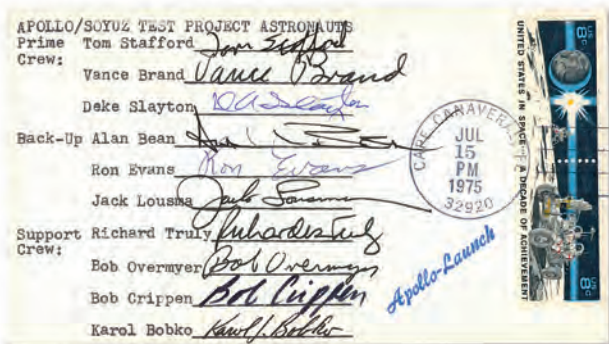 APOLLO/SOYUZ TEST PROJECT ASTRONAUTS
Prime Tom Stafford Tom Stafford
Crew:
Vance Brand Vance Brand
Deke Slayton D K Slayton
Back-Up Alan Bean Alan Bean
Ron Evans Ron Evans
Jack Lousma Jack Lousma
Support Richard Truly Richard Truly
Crew:
Bob Overmyer Bob Overmyer
Bob Crippen Bob Crippen
Karol Bobko Karol J. Bobko
CAPE CANAVERAL
JUL
15
PM
1975
32920
Apollo Launch
UNITED STATES IN SPACE... A DECADE OF ACHIEVEMENT
8c
US
8c